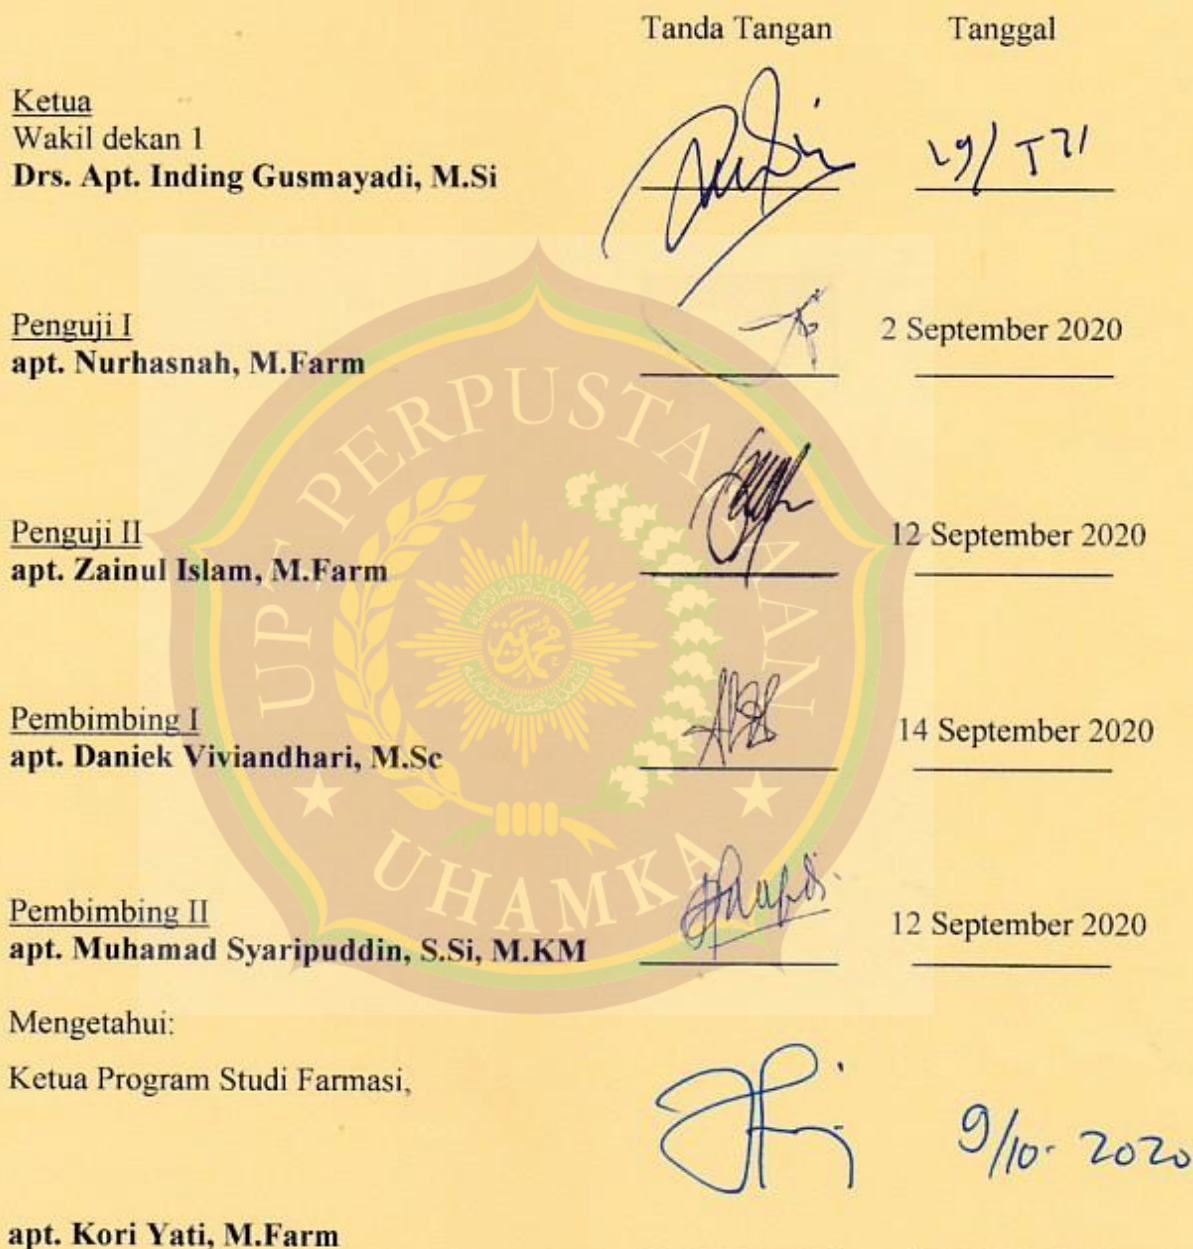 Tanda Tangan Tanggal
Ketua
Wakil dekan 1
Drs. Apt. Inding Gusmayadi, M.Si
Penguji I
apt. Nurhasnah, M.Farm
2 September 2020
Penguji II
apt. Zainul Islam, M.Farm
12 September 2020
Pembimbing I
apt. Daniek Viviandhari, M.Sc
14 September 2020
Pembimbing II
apt. Muhamad Syaripuddin, S.Si, M.KM
12 September 2020
Mengetahui:
Ketua Program Studi Farmasi,
9/10-2020
apt. Kori Yati, M.Farm
UPT PERPUSTAKAAN
UHAMKA